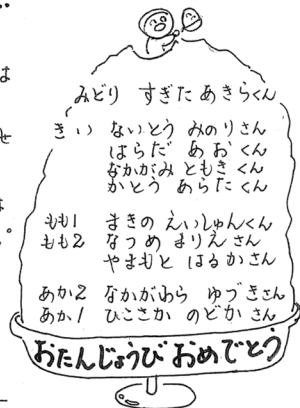 は
せ
は
。
みどり すぎた あきらくん
きい ないとう みのりさん
はらだ あお くん
なかがみ ともき くん
かとう あらた くん
もも1 まきの えいしゅんくん
もも2 なつめ まりえ さん
やまもと はるか さん
あか2 なかがわら ゆづきさん
あか1 ひこさか のどか さん
おたんじょうび おめでとう